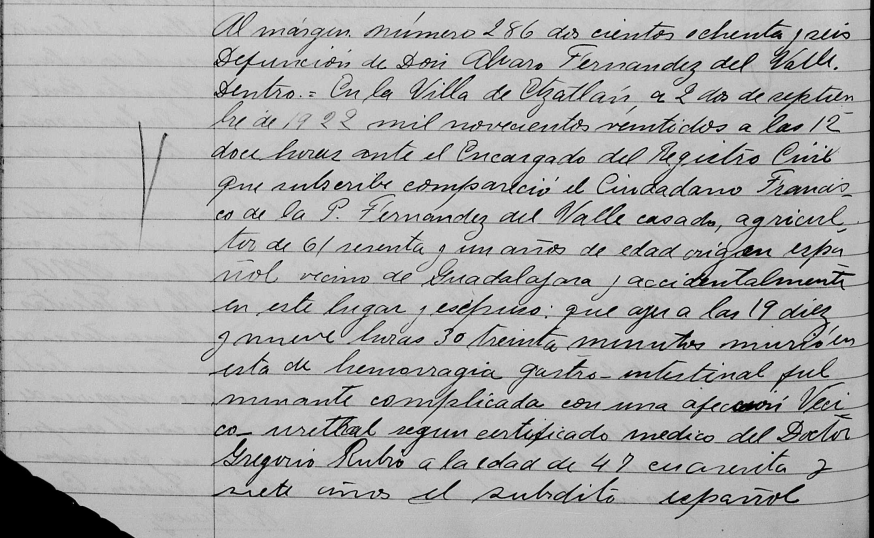 Al márgen número 286 dos cientos ochenta y seis
Defunción de Don Alvaro Fernandez del Valle.
Dentro.= En la Villa de Etzatlán, a 2 dos de septiem
bre de 1922 mil novecientos veintidos a las 12
doce horas ante el Encargado del Registro Civil
que subscribe compareció el Ciudadano Francis-
co de la P. Fernandez del Valle casado, agricul-
tor de 61 sesenta y un años de edad origen espa-
ñol vecino de Guadalajara y accidentalmente
en este lugar y expuso: que ayer a las 19 diez
y nueve horas 30 treinta minutos murió en
esta de hemorragia gastro-intestinal ful
minante complicada con una afección Vesi
co-urethal segun certificado medico del Doctor
Gregorio Rubio a la edad de 47 cuarenta y
siete años el subdito español